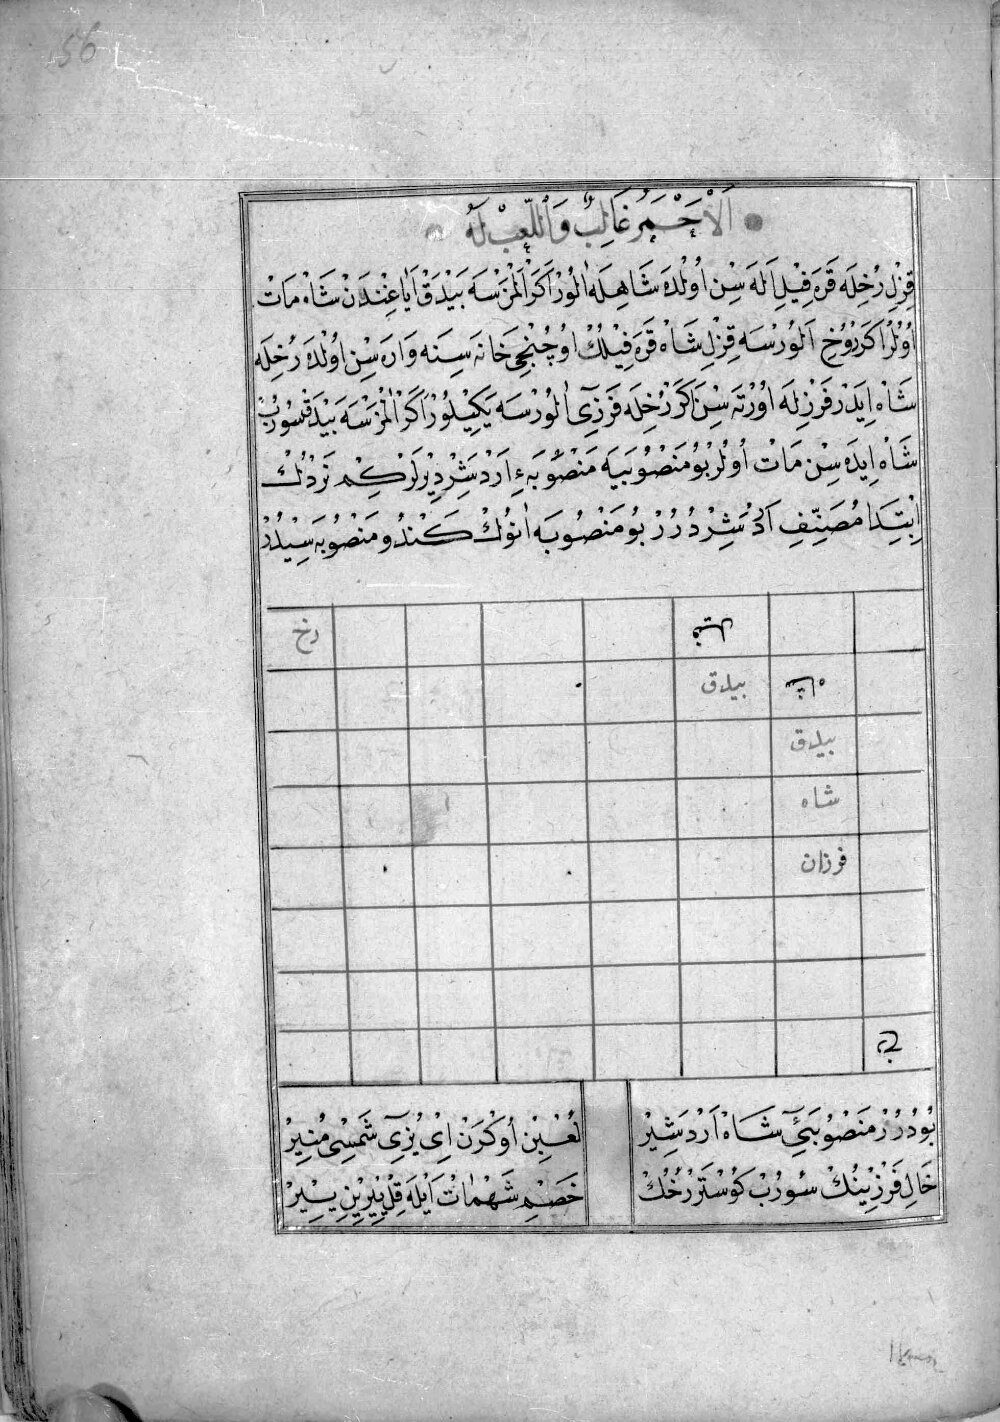 56
اَلْاَحْمَرُ غَالِبٌ وَاللَّعِبُ لَهُ
قِزِلْ رُخِلَه قَرَه فِيلِ اَلَه سِنْ اُولْدَه شَاهِلَه اٰلُوْرْ اَكَرْ اَلْمَزْسَه بَيْدَقْ اَيَاغِنْدَنْ شَاهْ مَاتْ
اُولُرْ اَكَرْ رُوخِ اَلُورْسَه قِزِلْ شَاهْ قَرَه فِيْلُكْ اُوچُنْجِى خَانَه سِنَه وَارَه سِنْ اُولْدَه رُخِلَه
شَاهْ اِيدَرْ فَرْزِلَه اُوْرْتَه سِنْ اَكَرْ رُخِلَه فَرْزِى اٰلُورْسَه يَكِيْلُورْ اَكَرْ اَلْمَزْسَه بَيْدَقْ سُورُبْ
شَاهْ اِيدَه سِنْ مَاتْ اُولُرْ بُو مَنْصُوبَيَه مَنْصُوبَهءِ اَرْدَشِرْ دِيْرلَرْ كِمْ نَرْدُكْ
اِبْتِدَا مُصَنِّفِ اَرْدَشِرْدُرُرْ بُو مَنْصُوبَه اٰنُوكْ كَنْدُو مَنْصُوبَه سِيْدُرْ
رخ
بيدق
بيدق
شاه
فرزان
بُودُرُرْ مَنْصُوبَئِ شَاهْ اَرْدَشِيْر لُعْبِنْ اُوكْرَنْ اِىْ يُزِى شَمْسِ مُنِيرْ
خَالِ فَرْزِيْنُكْ سُورُبْ كُوسْتَرْ رُخُكْ خَصْمِ شَهْمَاتْ اَيْلَه قِلْ